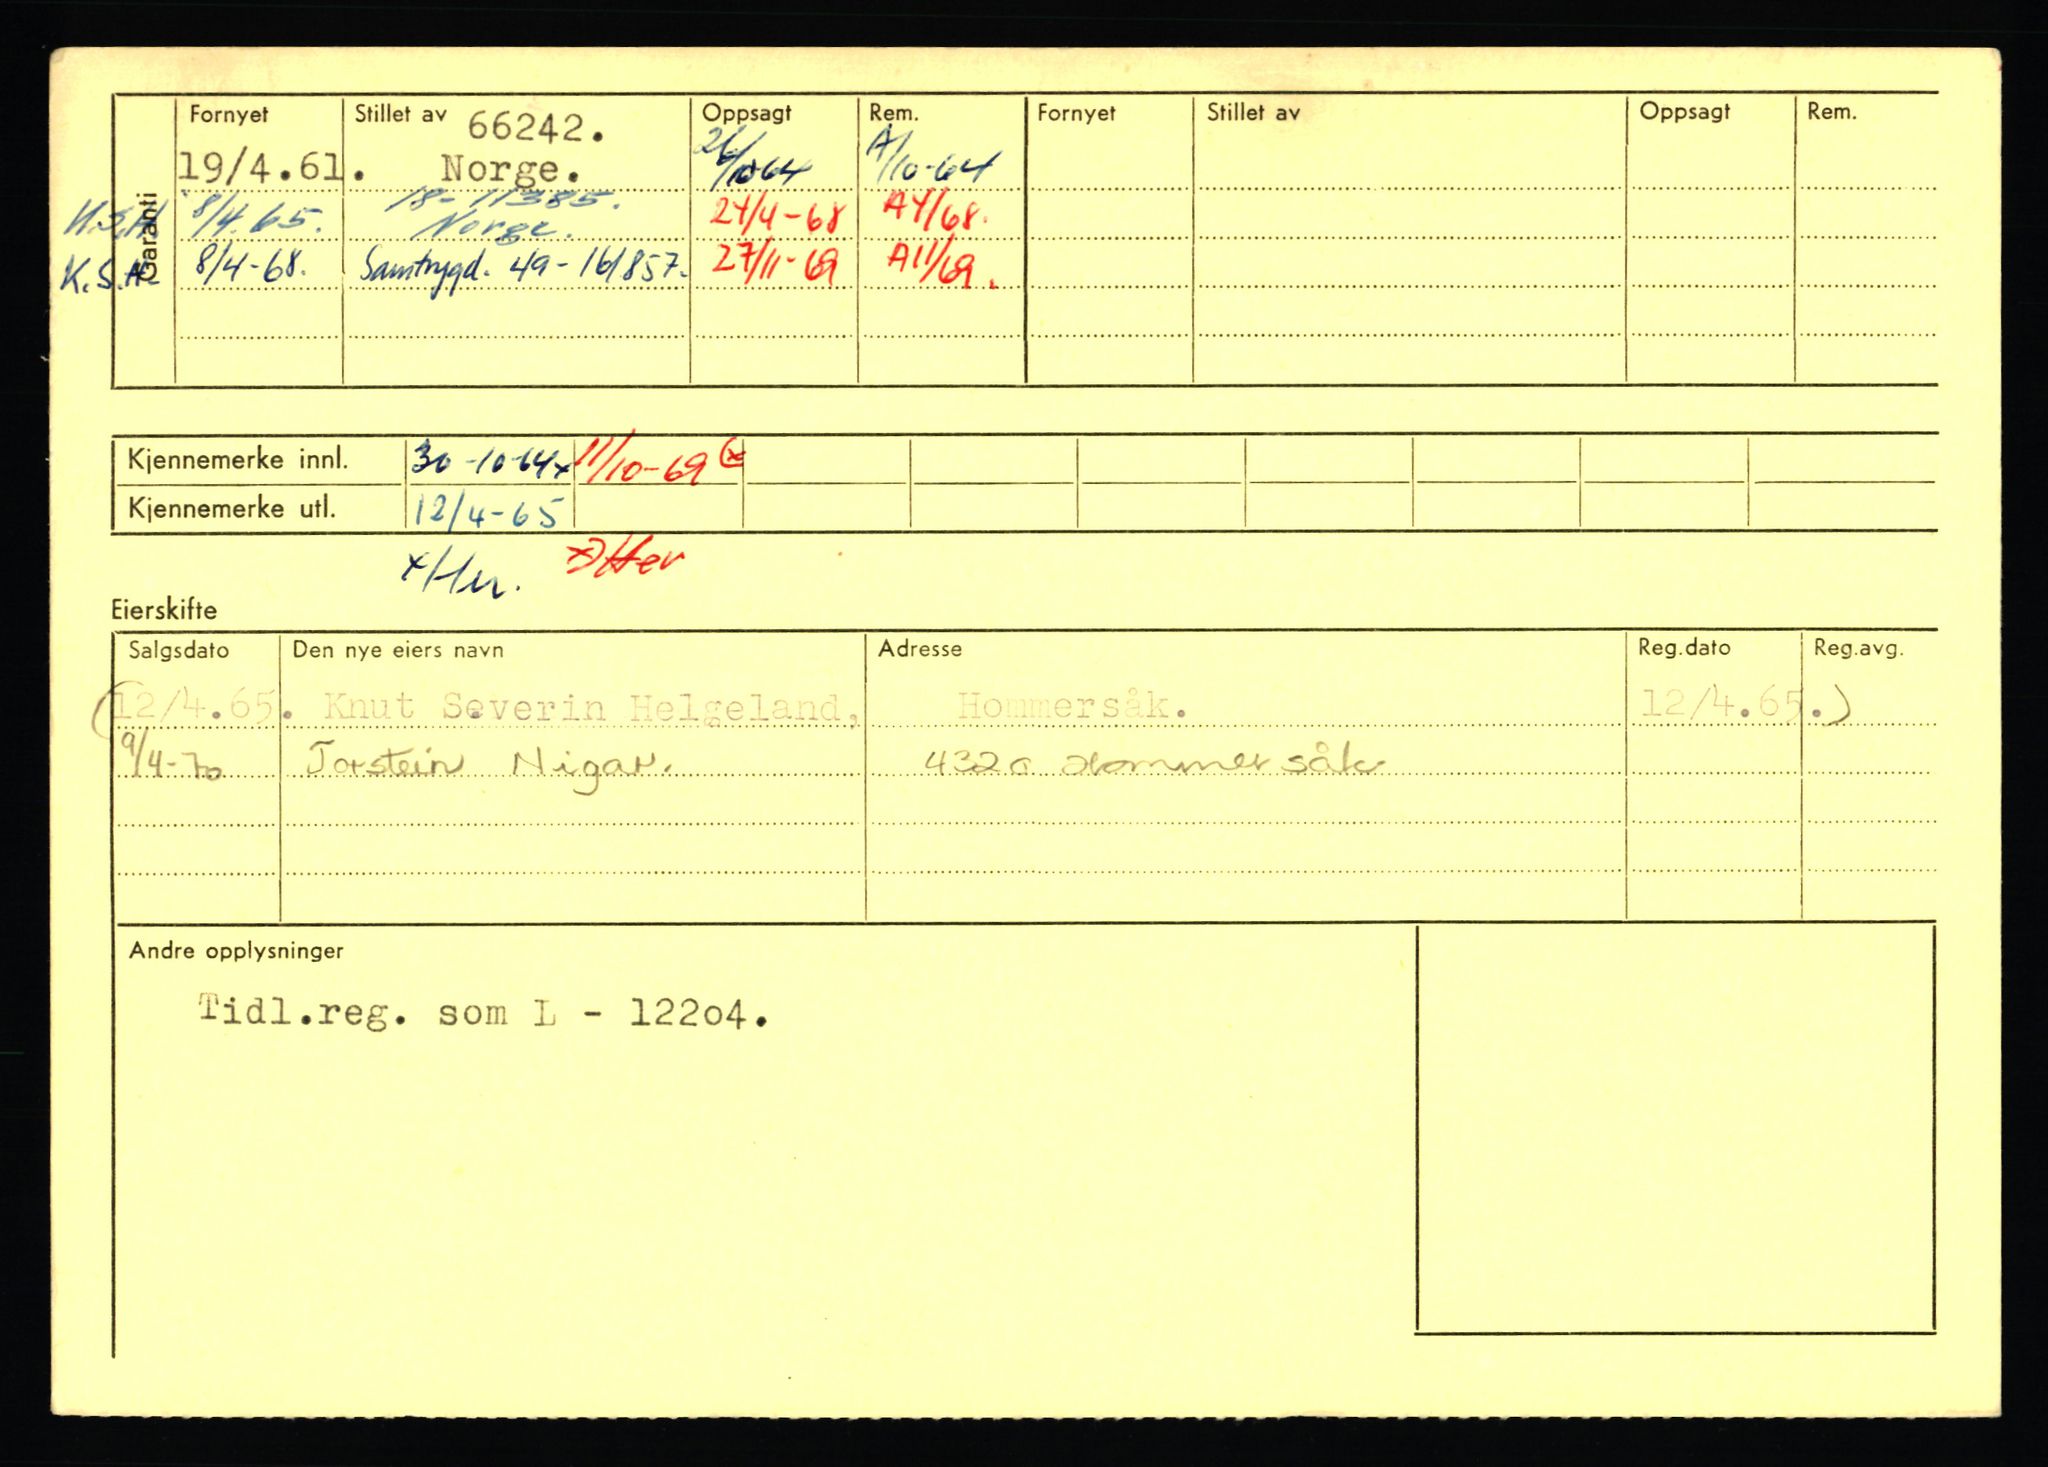 Garanti
Fornyet Stillet av 66242. Oppsagt Rem. Fornyet Stillet av Oppsagt Rem.
19/4.61. Norge. 26/10-64 A/10-64
K.S.H. 8/4.65. 18-11385. Norge. 24/4-68 A4/68.
K.S.H. 8/4-68. Samtrygd. 49-161857. 27/11-69 A11/69.
Kjennemerke innl. 30-10-64x 11/10-69 (x
Kjennemerke utl. 12/4-65
x/Her. x) Her
Eierskifte
Salgsdato Den nye eiers navn Adresse Reg.dato Reg.avg.
(12/4.65. Knut Severin Helgeland, Hommersåk. 12/4.65.)
9/4-70 Torstein Nigar. 4320 Hommersåk
Andre opplysninger
Tidl.reg. som L - 12204.